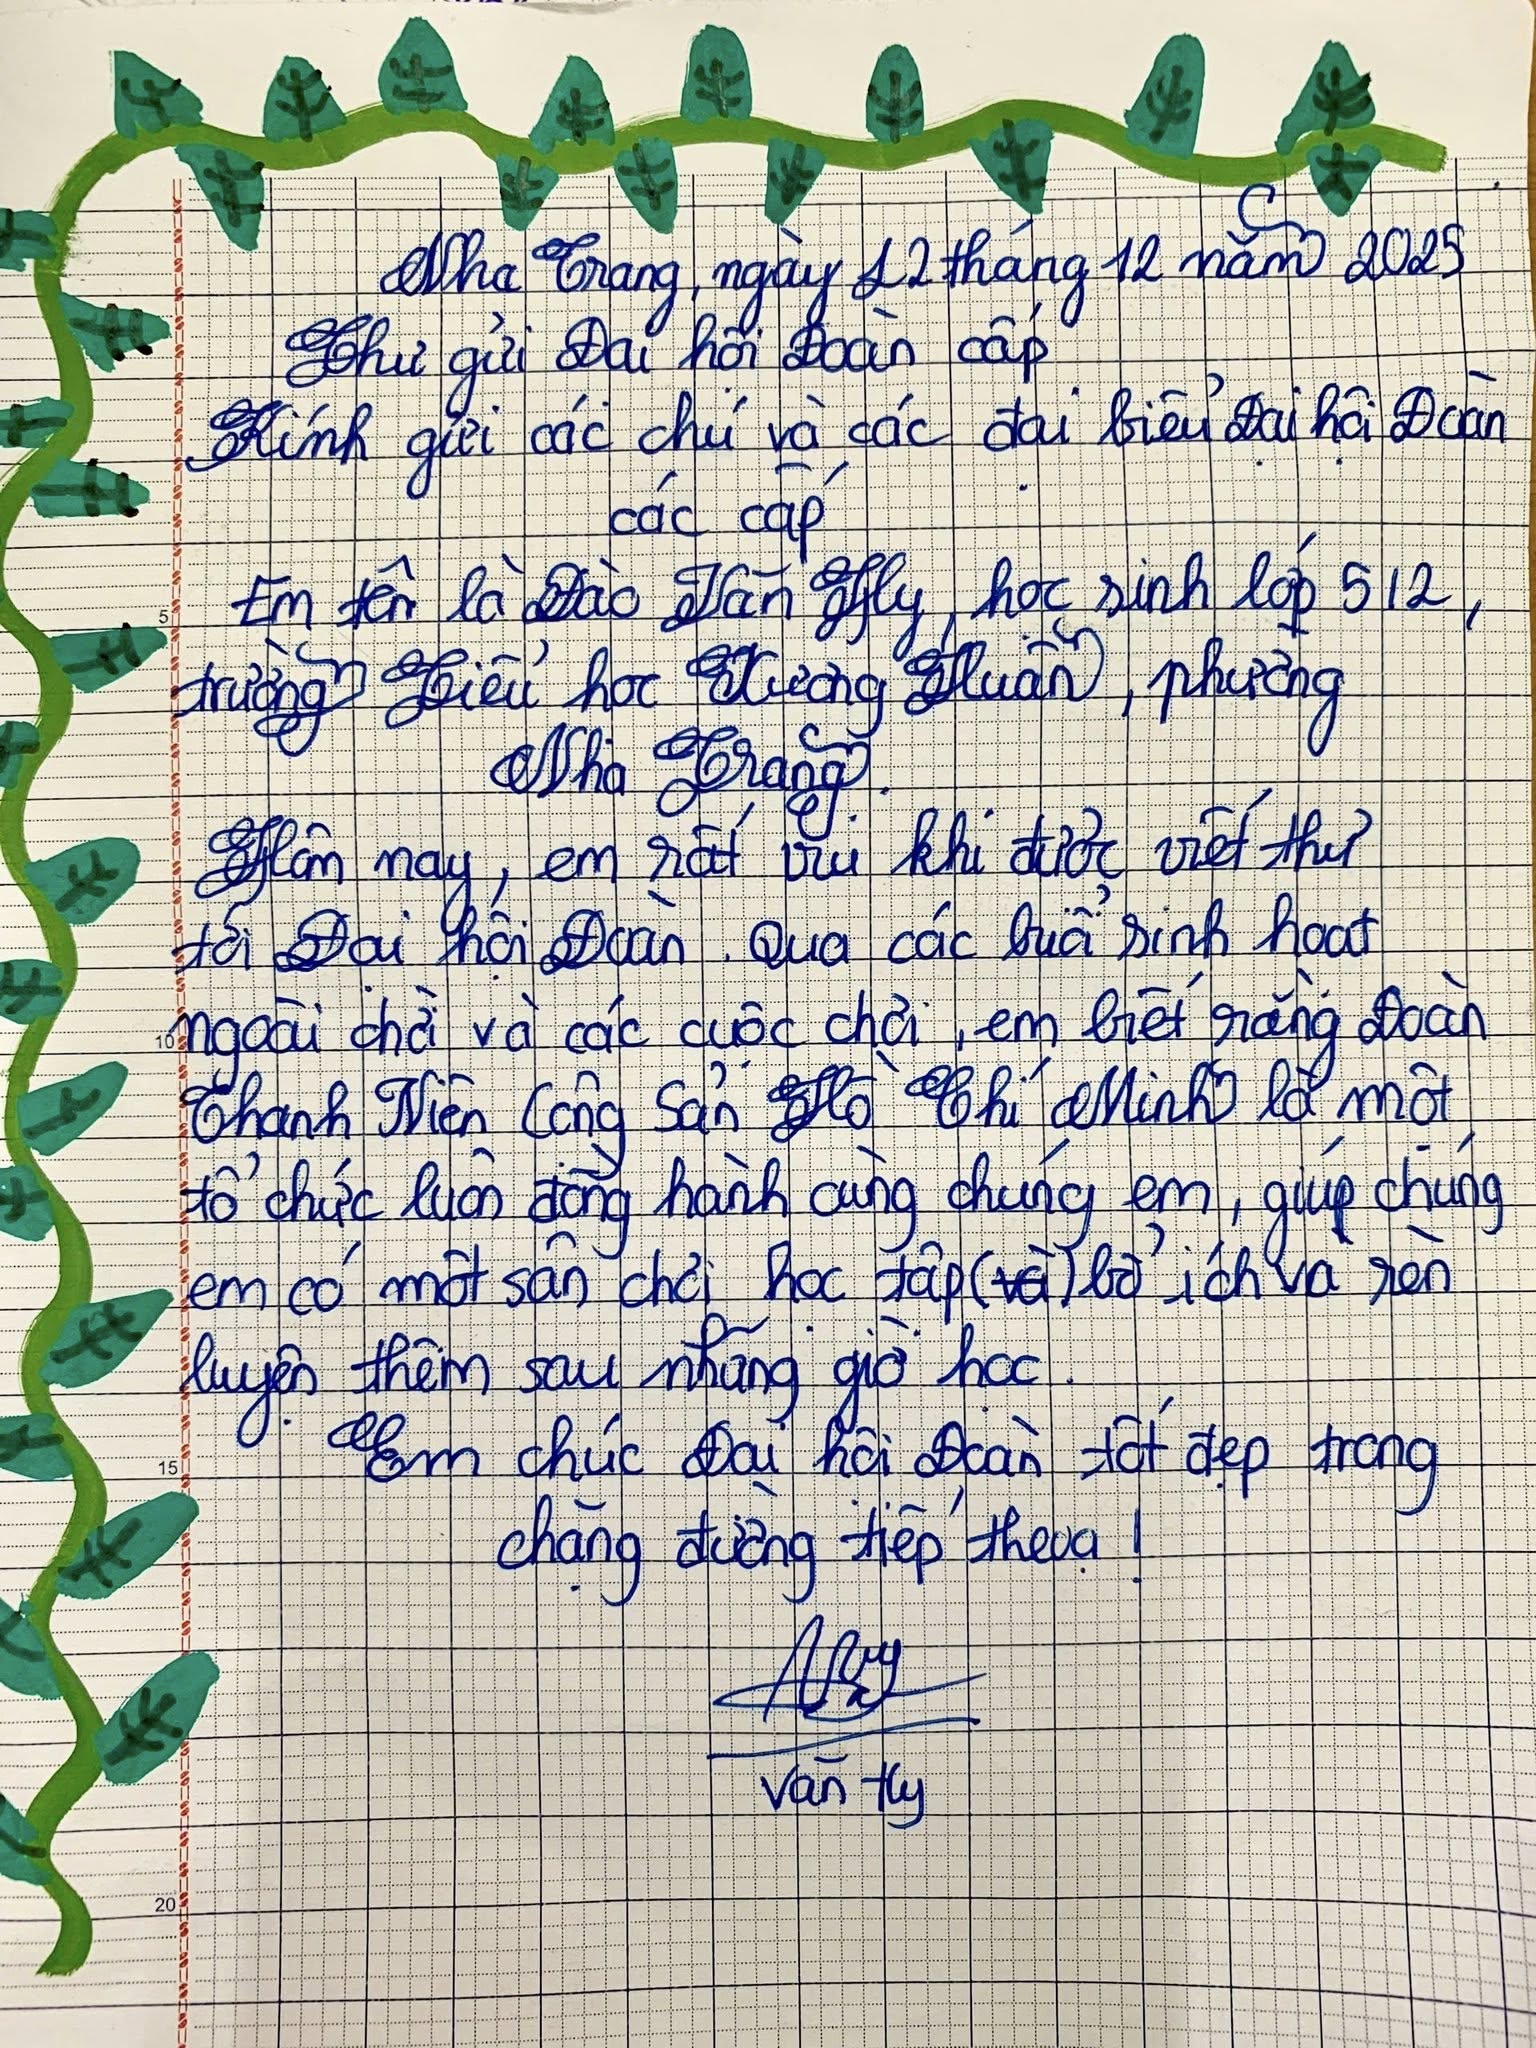 Nha Trang, ngày 12 tháng 12 năm 2025
Thư gửi Đại hội Đoàn cấp
Kính gửi các chú và các đại biểu Đại hội Đoàn
các cấp
Em tên là Đào Văn Hly, học sinh lớp 512,
trường Tiểu học Xương Huân, phường
Nha Trang.
Hôm nay, em rất vui khi được viết thư
tới Đại hội Đoàn. Qua các buổi sinh hoạt
ngoài chời và các cuộc chơi, em biết rằng Đoàn
Thanh Niên Cộng Sản Hồ Chí Minh là một
tổ chức luôn đồng hành cùng chúng em, giúp chúng
em có một sân chơi học tập (và) bổ ích và rèn
luyện thêm sau những giờ học.
Em chúc Đại hội Đoàn tốt đẹp trong
chặng đường tiếp theo ạ!
5
10
15
20